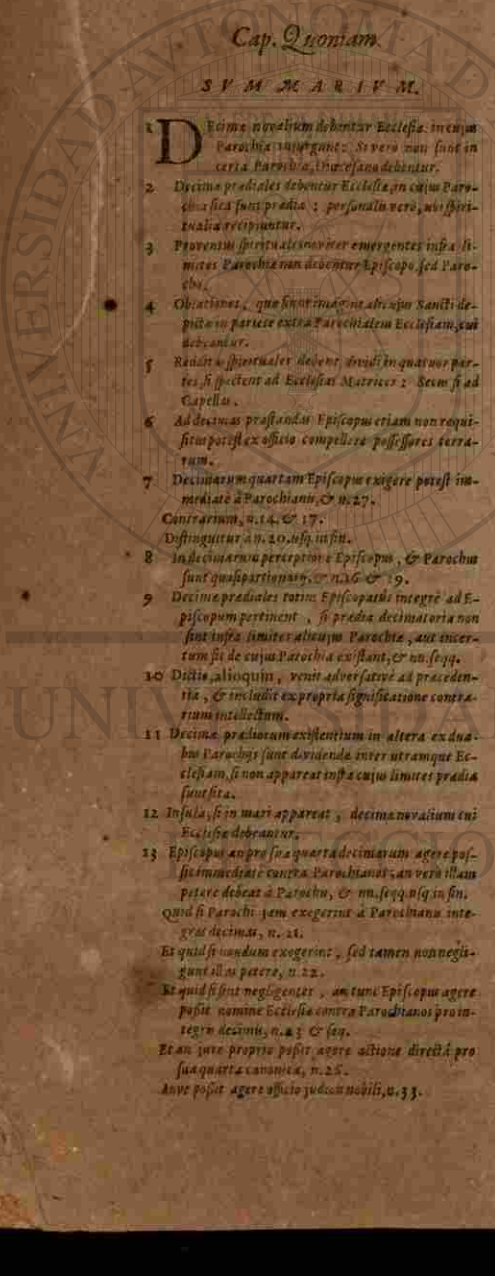 Cap. Quoniam.
SVMMARIVM.
1 DEcimæ novalium debentur Ecclesiæ in cujus
Parochia insurgunt: Si vero non sint in
certa Parochia, Diœcesano debentur.
2 Decimæ prædiales debentur Ecclesiæ, in cujus Paro-
chia sita sunt prædia; personales vero, ubi spiri-
tualia recipiuntur.
3 Proventus spirituales noviter emergentes infra li-
mites Parochiæ non debentur Episcopo, sed Paro-
cho.
4 Oblationes, quæ fiunt imagini alicujus Sancti de-
pictæ in pariete extra Parochialem Ecclesiam, cui
debeantur.
5 Redditus spirituales debent dividi in quatuor par-
tes, si spectent ad Ecclesias Matrices; Secus si ad
Capellas.
6 Ad decimas præstandas Episcopus etiam non requi-
situs potest ex officio compellere possessores terra-
rum.
7 Decimarum quartam Episcopus exigere potest im-
mediatè à Parochianis, & n. 27.
Contrarium, n. 14. & 17.
Distinguitur à n. 20. usq. in fin.
8 In decimarum perceptione Episcopus, & Parochus
sunt quasi partionarij, & n. 16 & 19.
9 Decimæ prædiales totius Episcopatus integrè ad E-
piscopum pertinent, si prædia decimatoria non
sint infra limites alicujus Parochiæ, aut incer-
tum sit de cujus Parochia existant, & nn. seqq.
10 Dictio, alioquin, venit adversativè ad præceden-
tia, & includit ex propria significatione contra-
rium intellectum.
11 Decimæ prædiorum existentium in altera ex dua-
bus Parochijs sunt dividendæ inter utramque Ec-
clesiam, si non appareat infra cujus limites prædia
sunt sita.
12 Insula, si in mari appareat, decima novalium cui
Ecclesiæ debeantur.
13 Episcopus an pro sua quarta decimarum agere pos-
sit immediatè contra Parochianos; an verò illam
petere debeat à Parochis, & nn. seqq. usq. in fin.
Quid si Parochi jam exegerint à Parochianis inte-
gras decimas, n. 21.
Et quid si nondum exegerint, sed tamen non negli-
gunt illas petere, n. 22.
Et quid si sint negligentes, an tunc Episcopus agere
possit nomine Ecclesiæ contra Parochianos pro in-
tegris decimis, n. 23 & seq.
Et an jure proprio possit agere actione directâ pro
sua quarta canonica, n. 25.
Anve possit agere officio judicis nobili, n. 33.